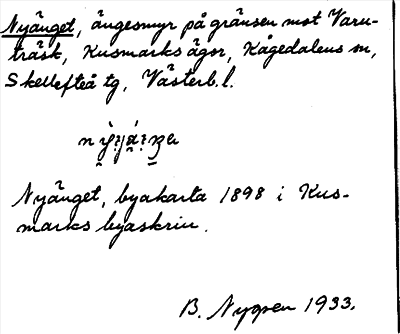 Nyänget, ängesmyr på gränsen mot Varu-
träsk, Kusmarks ägor, Kågedalens sn,
Skellefteå tg, Västerb.l.
Nyänget, byakarta 1898 i Kus-
marks byaskrin.
B. Nygren 1933.